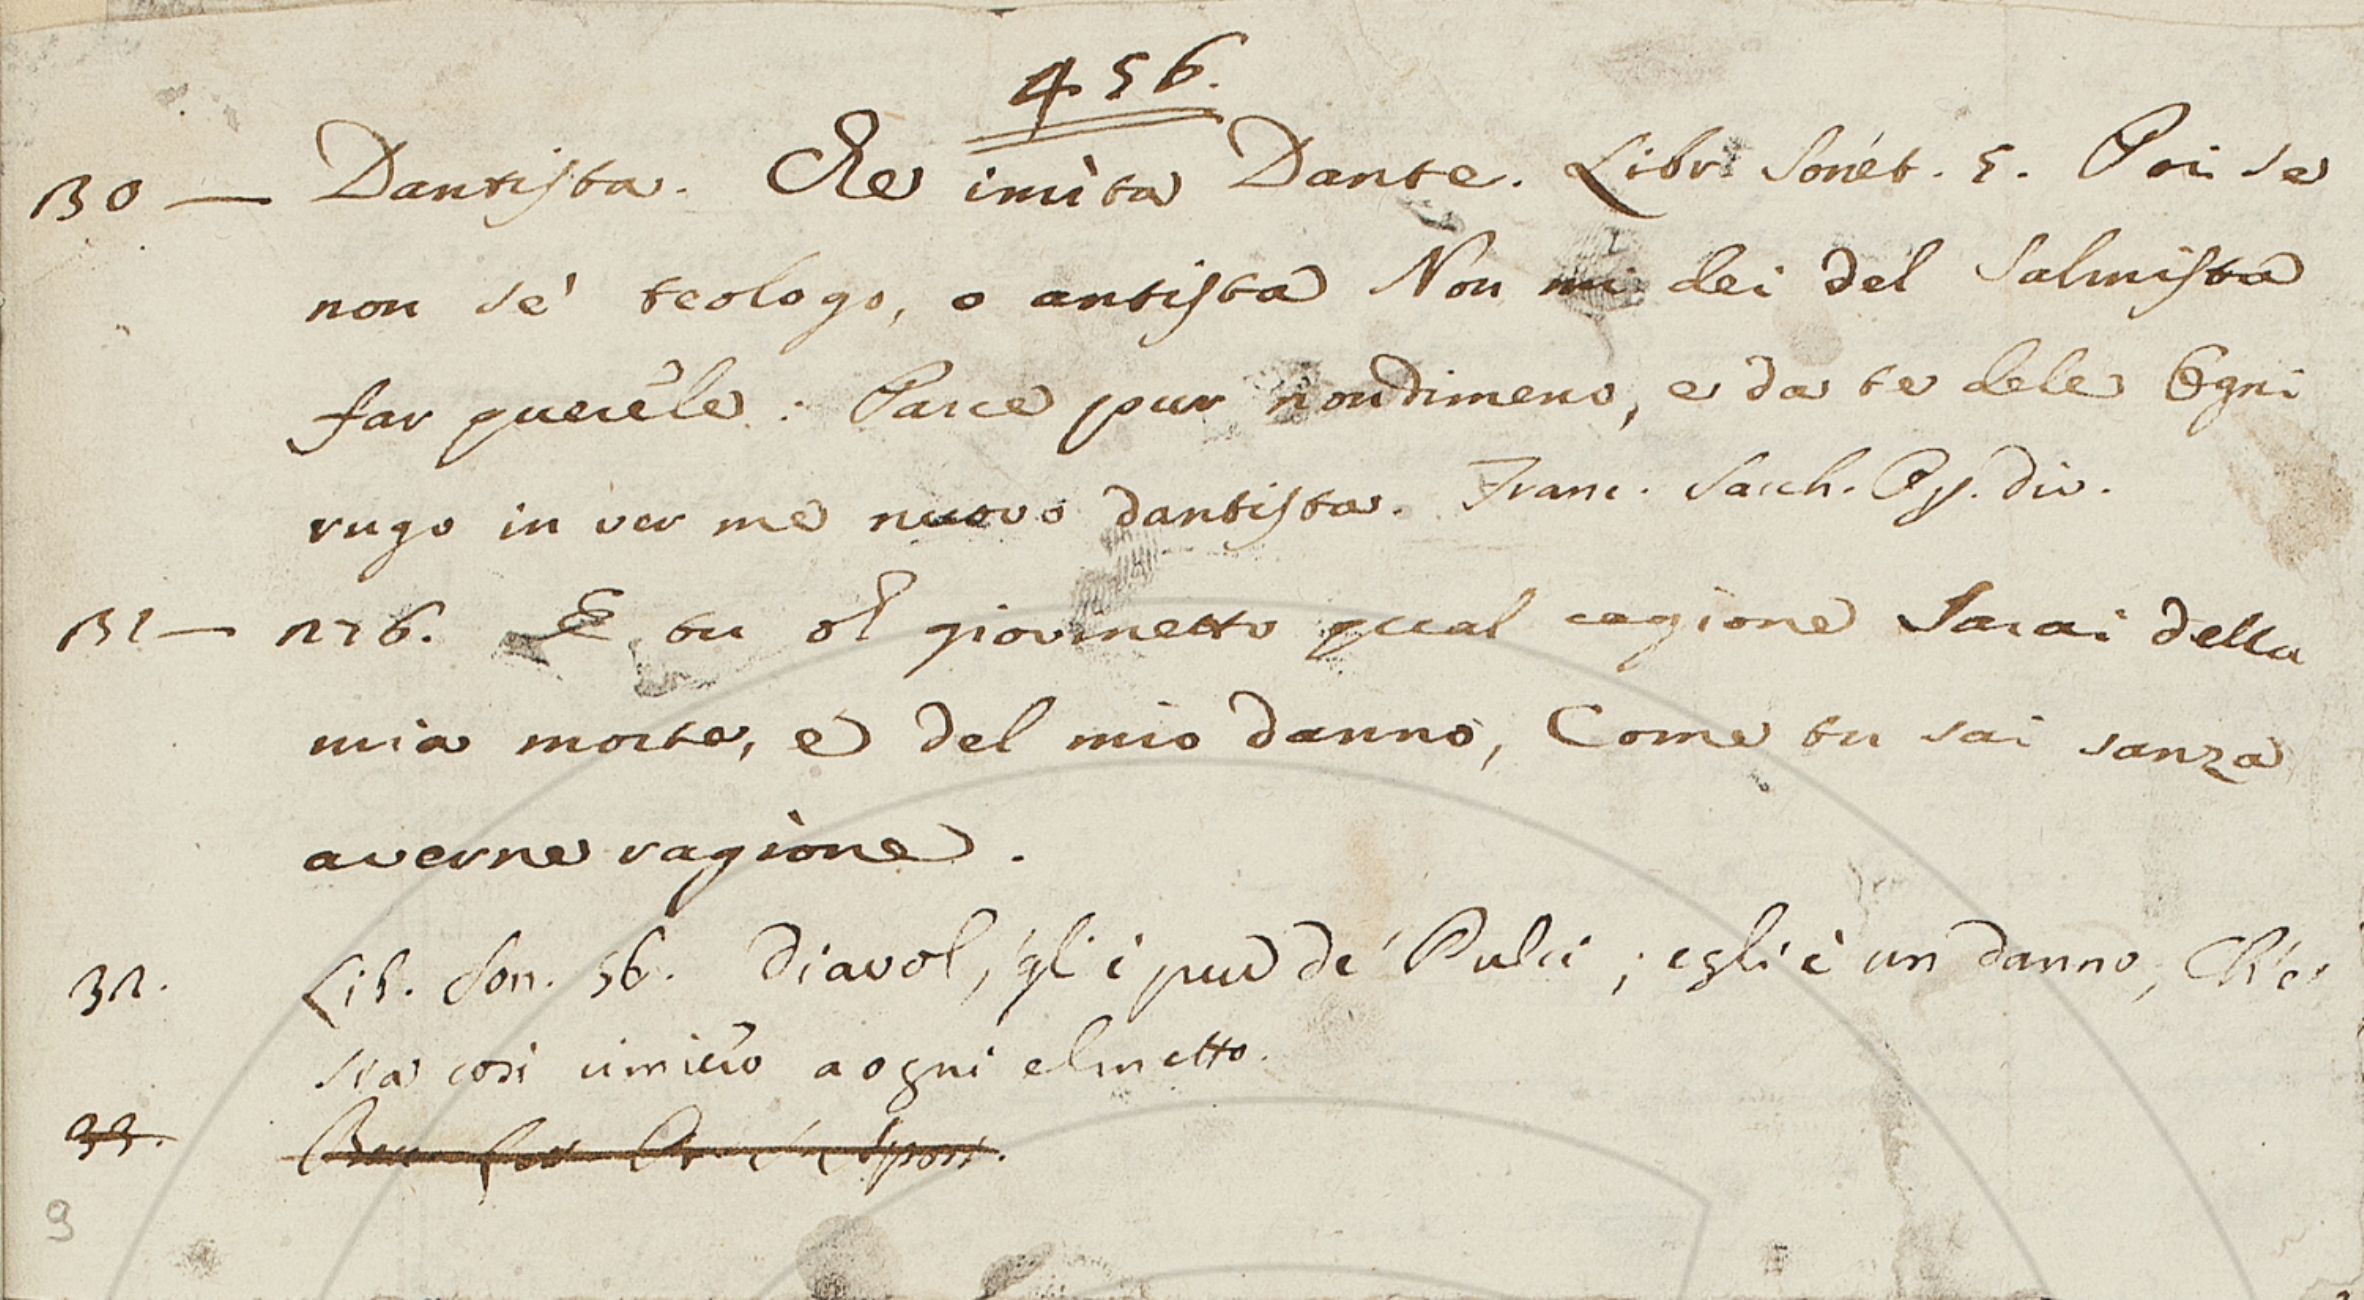 456.
130 — Dantista. Che imita Dante. Libr. Sonet. 5. Poi se
non se' teologo, o antista Non mi dei del Salmista
far querele: Parce pur nondimeno, e da te dele Ogni
rugo in ver me nuovo dantista. Franc. Sacch. Op. div.
131 — 126. E tu o giovinetto qual cagione Sarai della
mia morte, e del mio danno, Come tu sai sanza
averne ragione.
32. Lib. Son. 56. Diavol, gli è pur de' Pulci; egli è un danno, Ch'e'
sia così nimico a ogni elmetto.
33.
9